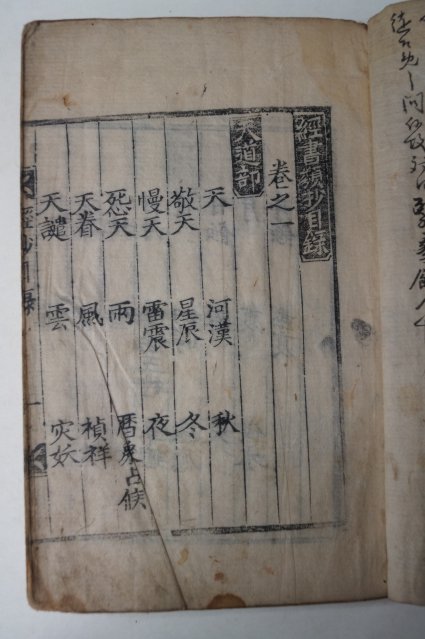 經書類抄目錄
卷之一
天道部
天 河漢 秋
敬天 星辰 冬
慢天 雷震 夜
怨天 雨 曆象占候
天眷 風 禎祥
天譴 雲 灾妖
經抄目錄 一